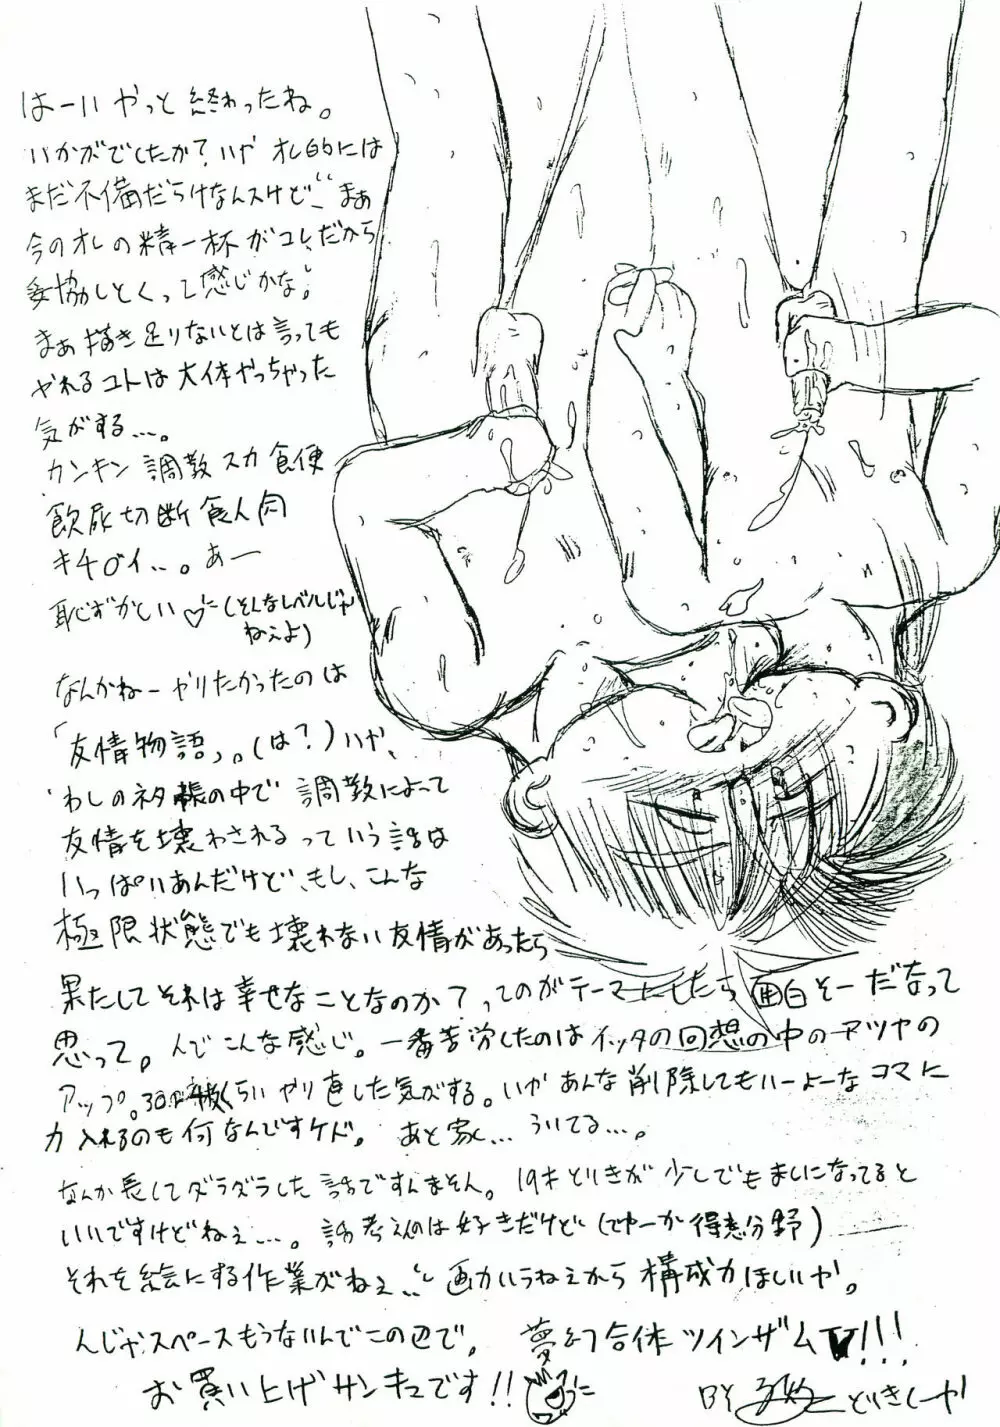 はーい やっと 終わったね。
いかがでしたか？いや オレ的には
まだ不備だらけなんスけど… まぁ
今のオレの精一杯がコレだから
妥協しとくって感じかな。
まぁ描き足りないとは言っても
やれるコトは大体やっちゃった
気がする…。
カンキン 調教 スカ 食便
飲尿 切断 食人肉
キチ〇イ…。あー
恥ずかしい♡（そんなレベルじゃ
ねぇよ）
なんかねーやりたかったのは
「友情物語」。（は？）いや、
わしのネタ帳の中で 調教によって
友情を壊わされるっていう話は
いっぱいあんだけど、もし、こんな
極限状態でも壊れない友情があったら
果たしてそれは幸せなことなのか？ってのがテーマにしたら面白そーだなって
思って。んで こんな感じ。一番苦労したのはイッタの回想の中のアツヤの
アップ。30回くらいやり直した気がする。いや あんな削除してもいーよーなコマに
力入れるのも何なんですケド。あと 家… ういてる…。
なんか長してダラダラした話ですんません。19才どりきが少しでもましになってると
いいですけどねぇ…。話考えんのは好きだけど（でゆーか得意分野）
それを絵にする作業がねぇ… 画力いらねぇから構成力ほしいや。
んじゃスペースもうないんでこの辺で。 夢幻合体 ツインザム !!!
お買い上げサンキュです!!
BY どりきしーや